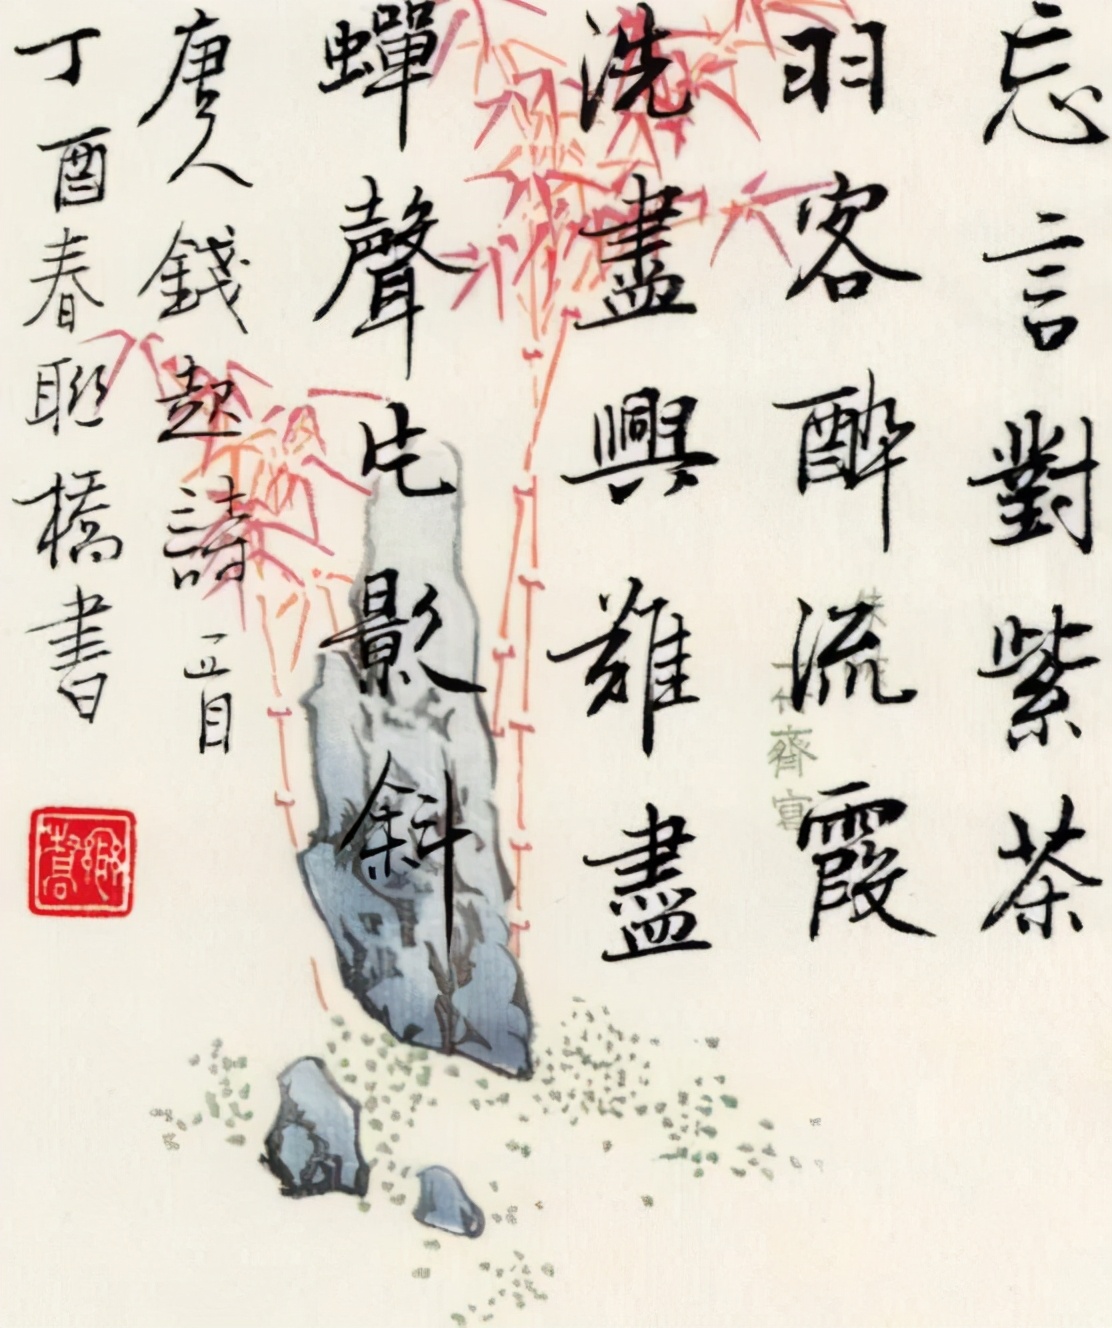 忘言對紫茶
羽客醉流霞
洗盡興難盡
蟬聲片影斜
唐人錢起詩一首
丁酉春聯橋書